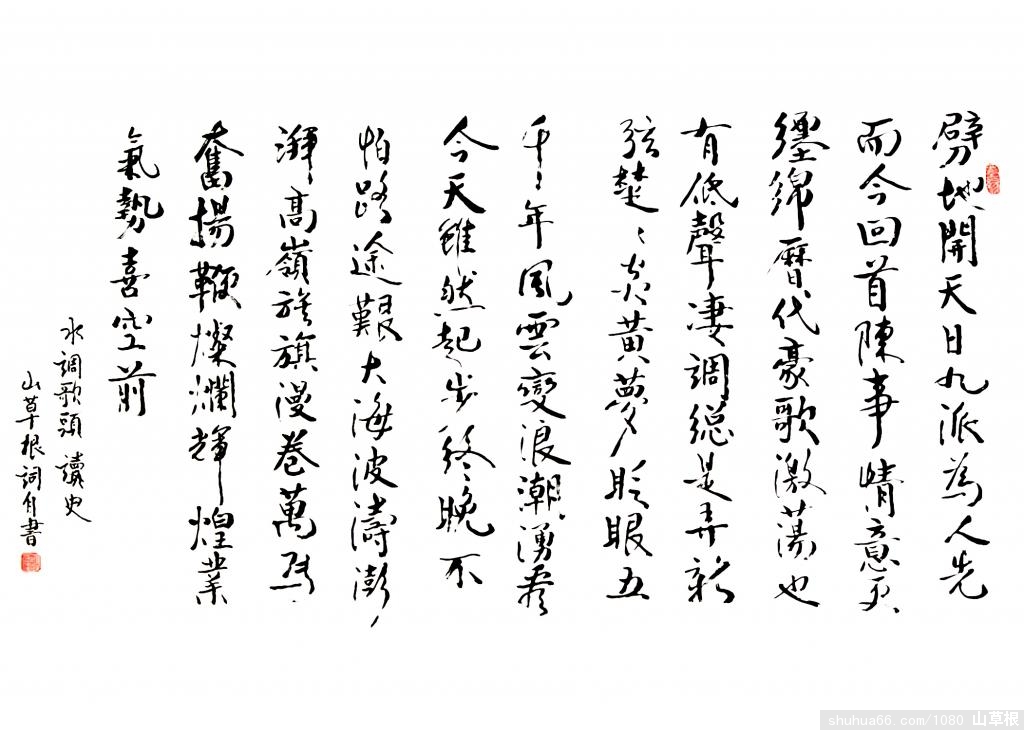 劈地開天日九派為人先
而今回首陳事情意更
纏綿歷代豪歌激蕩也
有低聲凄調總是弄新
弦楚楚炎黄夢眨眼五
千千年風雲變浪潮湧卷
今天雖然起步終晚不
怕路途艱大海波濤澎
湃高嶺旌旗漫卷萬馬
奮揚鞭燦爛輝煌業
氣勢喜空前
水調歌頭 讀史
山草根詞自書
shuhua66.com/1080 山草根